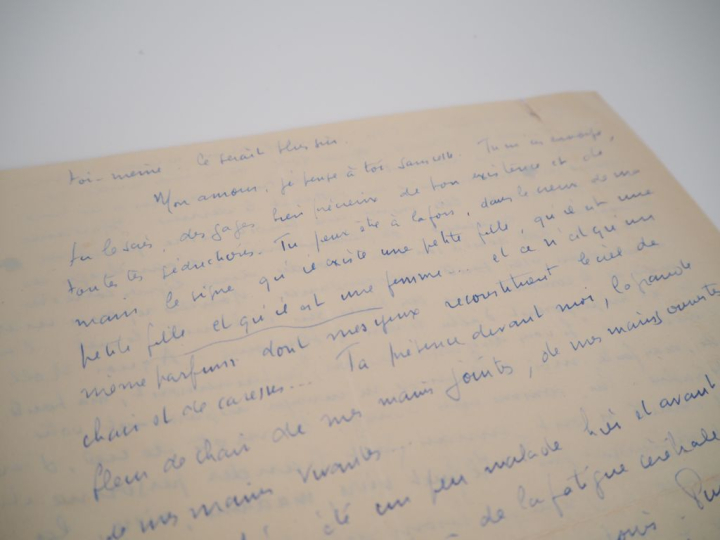 toi-même. Ce serait plus sûr.
Mon amour, je pense à toi sans cesse. Tu m'as envoyé,
tu le sais, des gages bien précieux de ton existence et de
toutes tes séductions. Tu peux être à la fois, dans le creux de ma
main, le signe qu'il existe une petite fille, qu'il est une
petite fille et qu'il est une femme... et ce n'est qu'un
même parfum dont mes yeux reconstituent de
chair et de caresses... Ta présence devant moi, la grande
fleur de chair de mes mains jointes, de mes mains ouvertes
de mes mains vivantes...
été un peu malade hier et avant
de la fatigue cérébrale